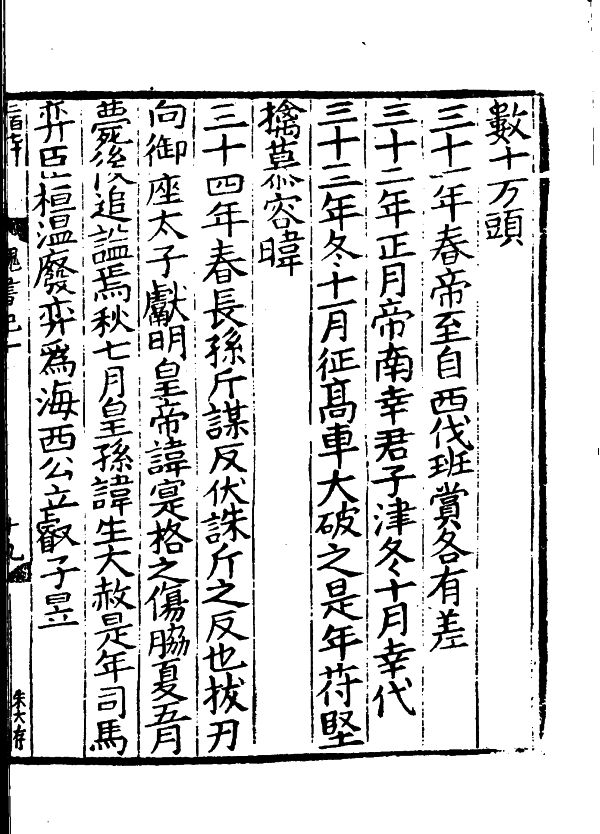 數十万頭
三十一年春帝至自西伐班賞各有差
三十二年正月帝南幸君子津冬十月幸代
三十三年冬十一月征髙車大破之是年苻堅
擒慕容暐
三十四年春長孫斤謀反伏誅斤之反也拔刃
向御座太子獻明皇帝諱寔格之傷脇夏五月
薨後追謚焉秋七月皇孫諱生大赦是年司馬
弈臣桓温廢弈爲海西公立叡子昱
魏書紀一
十九
朱大存